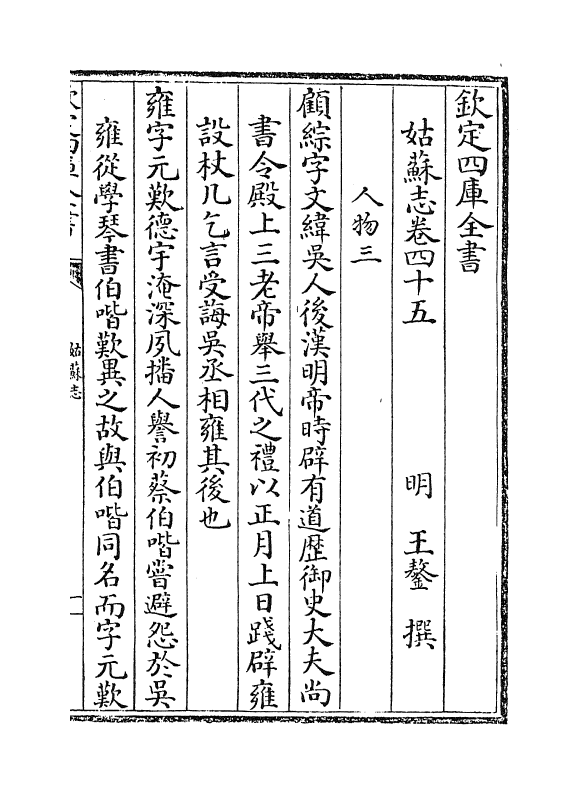 欽定四庫全書
姑蘇志卷四十五　明　王鏊　撰
人物三
顧綜字文緯吳人後漢明帝時辟有道歴御史大夫尚
書令殿上三老帝舉三代之禮以正月上日踐辟雍
設杖几乞言受誨吳丞相雍其後也
雍字元歎德宇淹深夙播人譽初蔡伯喈嘗避怨於吳
雍從學琴書伯喈歎異之故與伯喈同名而字元歎
姑蘇志
一